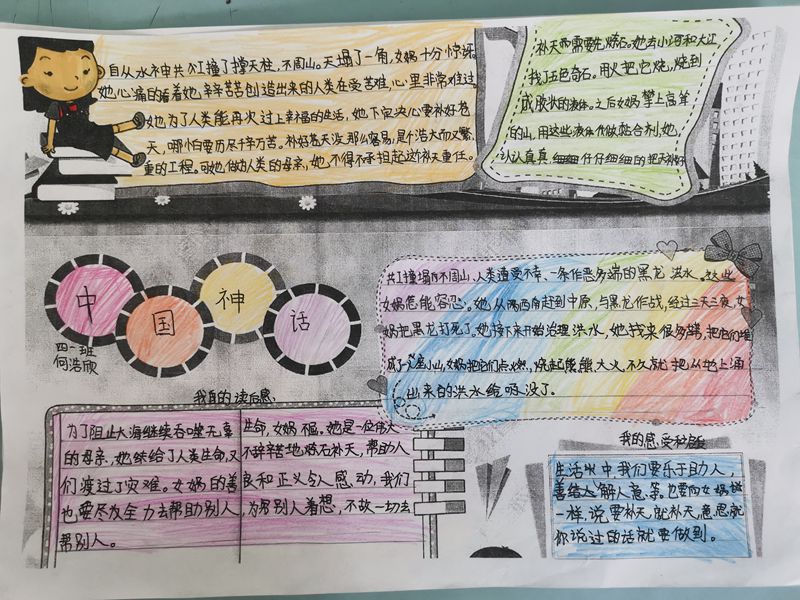 自从水神共工撞了撑天柱,不周山。天塌了一角,女娲十分惊讶
她心痛的看着她辛辛苦苦创造出来的人类在受苦难,心里非常难过。
她为了人类能再次过上幸福的生活,她下定决心要补好苍
天,哪怕要历尽千辛万苦。补好苍天没那么容易,是个浩大而又繁
重的工程。可她做为人类的母亲,她不得不承担起这补天重任。
补天而需要先炼石。她去小河和大江
找了五色奇石。用火把它烧,烧到
成胶状的液体。之后女娲攀上高耸
的山,用这些液体做黏合剂,她
认认真真细细仔仔细细的把天补好
中国神话
四一班
何浩欣
共工撞塌了不周山,人类遭受不幸、一条作恶多端的黑龙洪水。这些
女娲怎能容忍。她从西角赶到中原,与黑龙作战,经过三天三夜,女
娲把黑龙打死了。她接下来开始治理洪水,她找来很多柴,把它们堆
成了座小山,女娲把它们点燃,烧起熊熊大火,不久就把从地上涌
出来的洪水给吸没了。
我真的读后感、
为了阻止大海继续吞噬无辜生命,女娲 她是一位伟大
的母亲,她给了人类生命,又不辞辛苦地炼石补天,帮助人
们渡过了灾难。女娲的善良和正义令人感动,我们
也要尽我全力去帮助别人,为别人着想,不放一切去
帮别人。
我的感受
生活中我们要乐于助人,
善结人解人意等。也要向女娲
一样,说要补天,就补天,意思就
你说过的话就要做到。